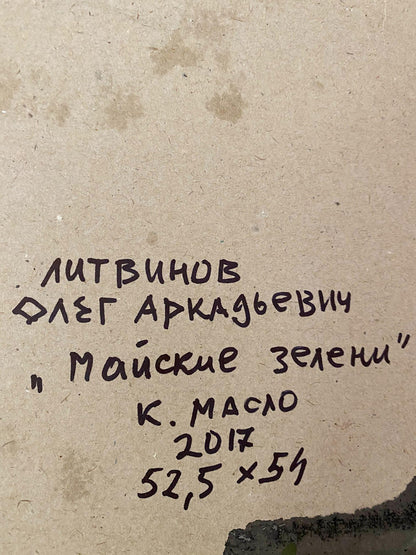 ЛИТВИНОВ
ОЛЕГ АРКАДЬЕВИЧ
„Майские зелени"
К. МАСЛО
2017
52,5 × 54